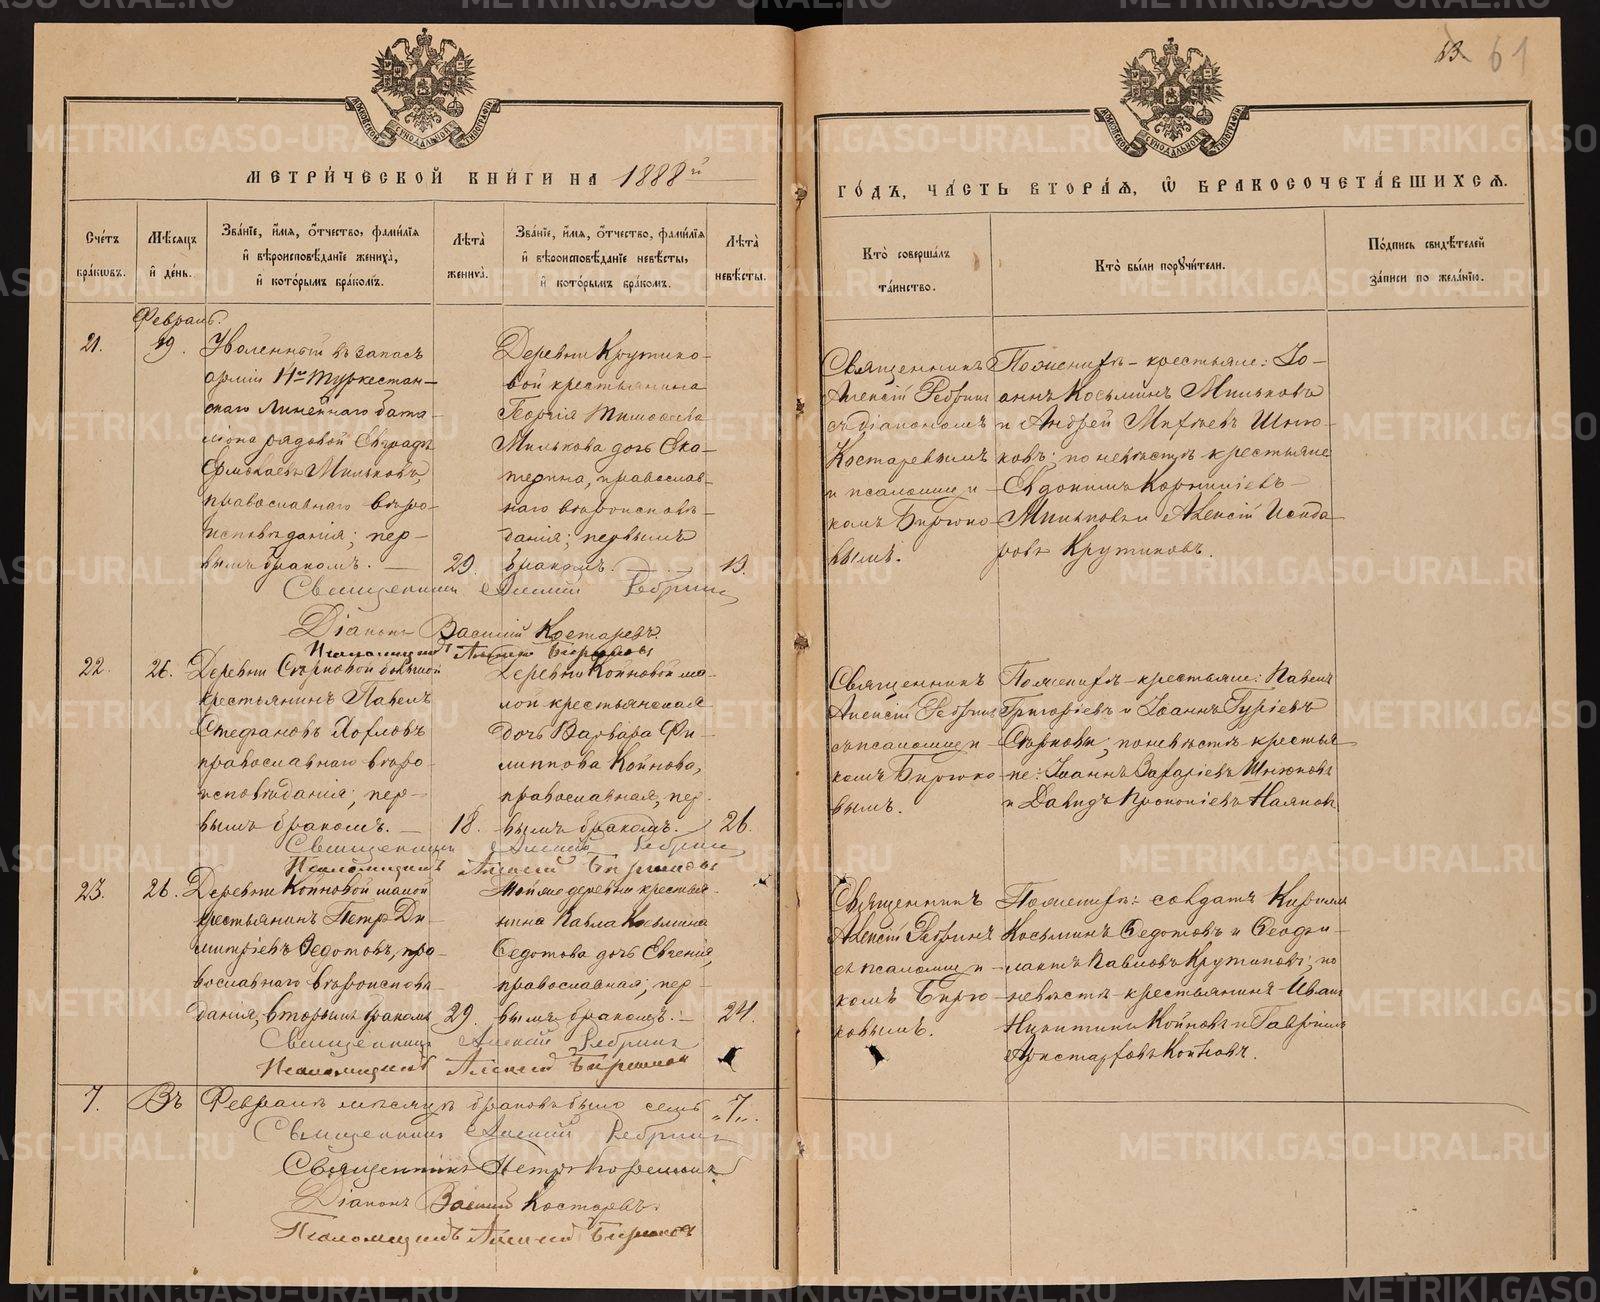 13. 61
МОСКОВСКОЙ СѴНОДАЛЬНОЙ ТИПОГРАФІИ
МОСКОВСКОЙ СѴНОДАЛЬНОЙ ТИПОГРАФІИ
МЕТРИ́ЧЕСКОЙ КНИ́ГИ НА 1888й
ГО́ДЪ, ЧА́СТЬ ВТОРА́Я, Ѡ БРАКОСОЧЕТА́ВШИХСЯ.
Сче́тъ бра́кѡвъ.
Мѣ́сяцъ и҆ де́нь.
Зва́нїе, и҆́мя, ѻ҆́тчество, фами́лїя и҆ вѣроисповѣ́данїе жениха̀, и҆ кото́рымъ бра́комъ.
Лѣ́та жениха̀.
Зва́нїе, и҆́мя, ѻ҆́тчество, фами́лїя и҆ вѣроисповѣ́данїе невѣ́сты, и҆ кото́рымъ бра́комъ.
Лѣ́та невѣ́сты.
Кто̀ соверша́лъ та́инство.
Кто̀ бы́ли порꙋчи́тели.
По́дпись свидѣ́телей за́писи по жела́нїю.
Февраль.
21.
19.
Уволенный въ запасъ
арміи 11го Туркестан-
скаго Линейнаго бата-
ліона рядовой
Мильковъ,
православнаго вѣро-
исповѣданія; пер-
вымъ бракомъ.
29.
Деревни Крутико-
вой крестьянина
Георгія Тимофеева
Милькова дочь Ека-
терина, православ-
наго вѣроисповѣ-
данія; первымъ
бракомъ.
19.
Священникъ
Алексій Ребринъ
съ діакономъ
Костаревымъ
и псаломщи-
комъ Бирюко-
вымъ.
По женихѣ - крестьяне: Іо-
аннъ Косьминъ Мильковъ
и Андрей
ковъ; по невѣстѣ крестьяне
Евдокимъ Корниліевъ
Мильковъ и Алексій Исидо-
ровъ Крутиковъ.
Священникъ Алексій Ребринъ
Діаконъ Василій Костаревъ.
Псаломщикъ Алексій Бирюковъ
22.
26.
Деревни большой
крестьянинъ Павелъ
Стефановъ
православнаго вѣро-
исповѣданія; пер-
вымъ бракомъ.
18.
Деревни Койновой ма-
лой крестьянская
дочь Варвара Фи-
липпова Койнова,
православная, пер-
вымъ бракомъ.
26.
Священникъ
Алексій Ребринъ
съ псаломщи-
комъ Бирюко-
вымъ.
По женихѣ - крестьяне: Павелъ
Григоріевъ и Іоаннъ Гуріевъ
по невѣстѣ - крестья-
не: Іоаннъ Захаріевъ
и Давидъ Прокопіевъ
Священникъ Алексій Ребринъ
Псаломщикъ Алексій Бирюковъ
23.
26.
Деревни Койновой малой
крестьянинъ Петръ Ди-
митріевъ Ѳедотовъ, пра-
вославнаго вѣроисповѣ-
данія, вторымъ бракомъ
29.
Той же деревни крестья-
нина Павла Косьмина
Ѳедотова дочь Евгенія,
православная; пер-
вымъ бракомъ.
24.
Священникъ
Алексій Ребринъ
съ псаломщи-
комъ Бирю-
ковымъ.
По женихѣ: солдатъ Кириллъ
Косьминъ Ѳедотовъ и Ѳеофи-
лактъ Павловъ Крутиковъ; по
невѣстѣ - крестьянинъ Иванъ
Никитинъ Койновъ и Гавріилъ
Аристарховъ Койновъ.
Священникъ Алексій Ребринъ
Псаломщикъ Алексій Бирюковъ
7. Въ Февралѣ мѣсяцѣ браковъ было семь „7“.
Священникъ Алексій Ребринъ
Священникъ Петръ
Діаконъ Василій Костаревъ.
Псаломщикъ Алексій Бирюковъ
METRIKI.GASO-URAL.RU